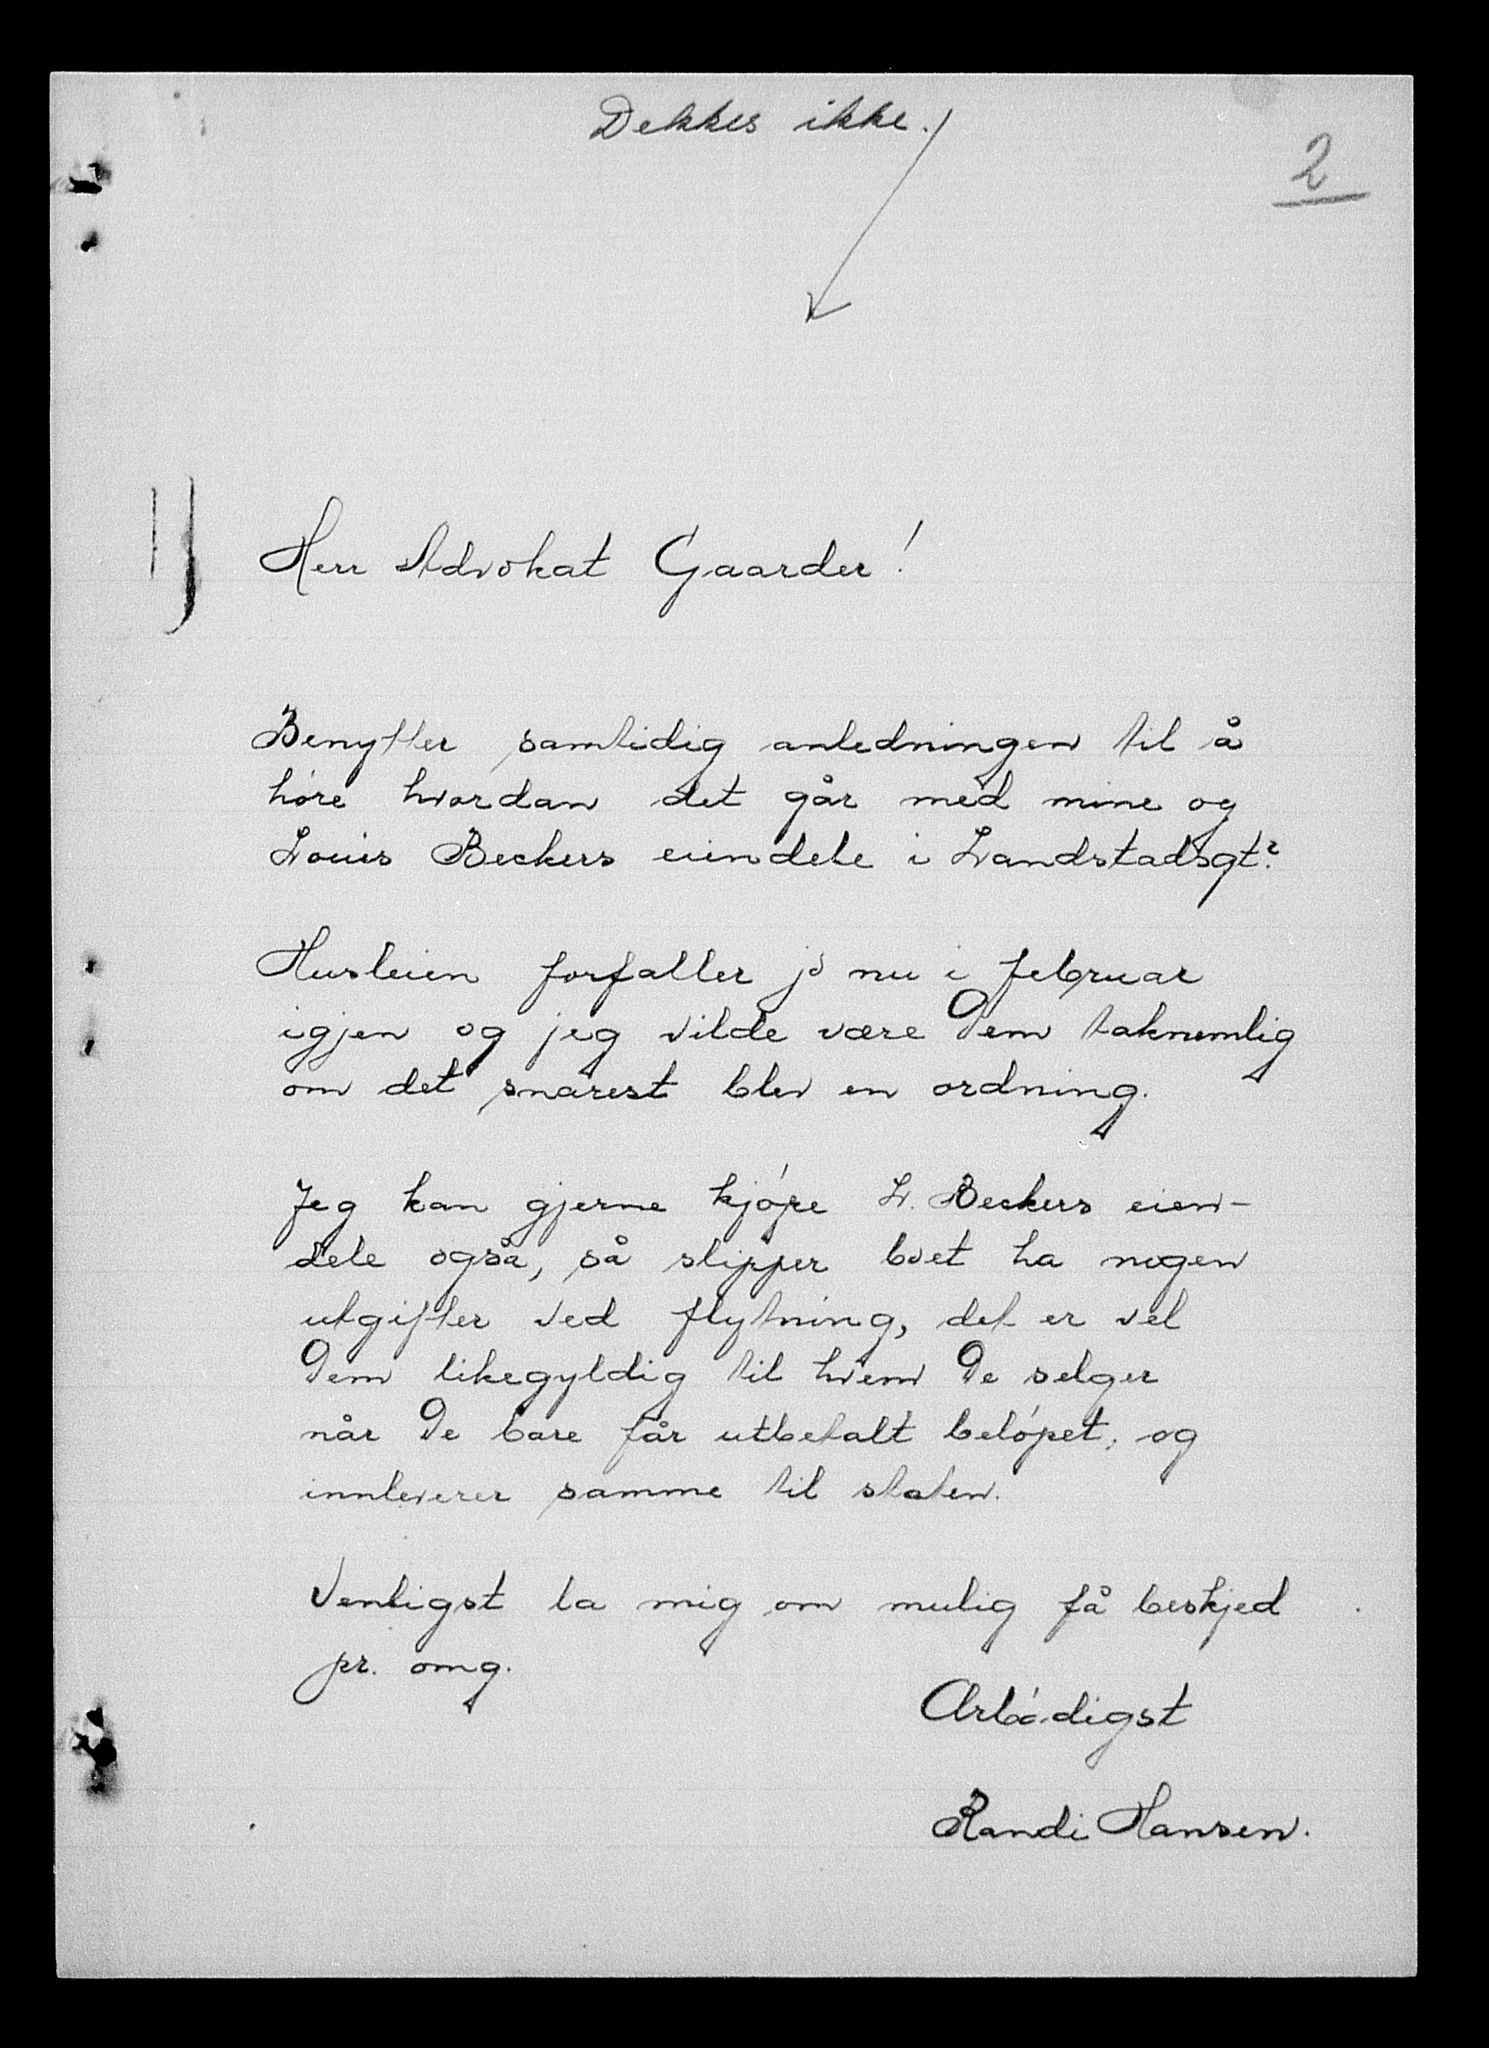 Dekkes ikke.
2
Herr Advokat Gaarder!
Benytter samtidig anledningen til å
høre hvordan det går med mine og
Louis Beckers eiendele i Landstadsgt?
Husleien forfaller jo nu i februar
igjen og jeg vilde være Dem taknemlig
om det snarest blev en ordning.
Jeg kan gjerne kjøpe L. Beckers eien-
dele også, så slipper boet ha nogen
utgifter ved flytning, det er vel
Dem likegyldig til hvem De selger
når De bare får utbetalt beløpet, og
innleverer samme til staten.
Venligst la mig om mulig få beskjed
pr. omg.
Ærbødigst
Randi Hansen.